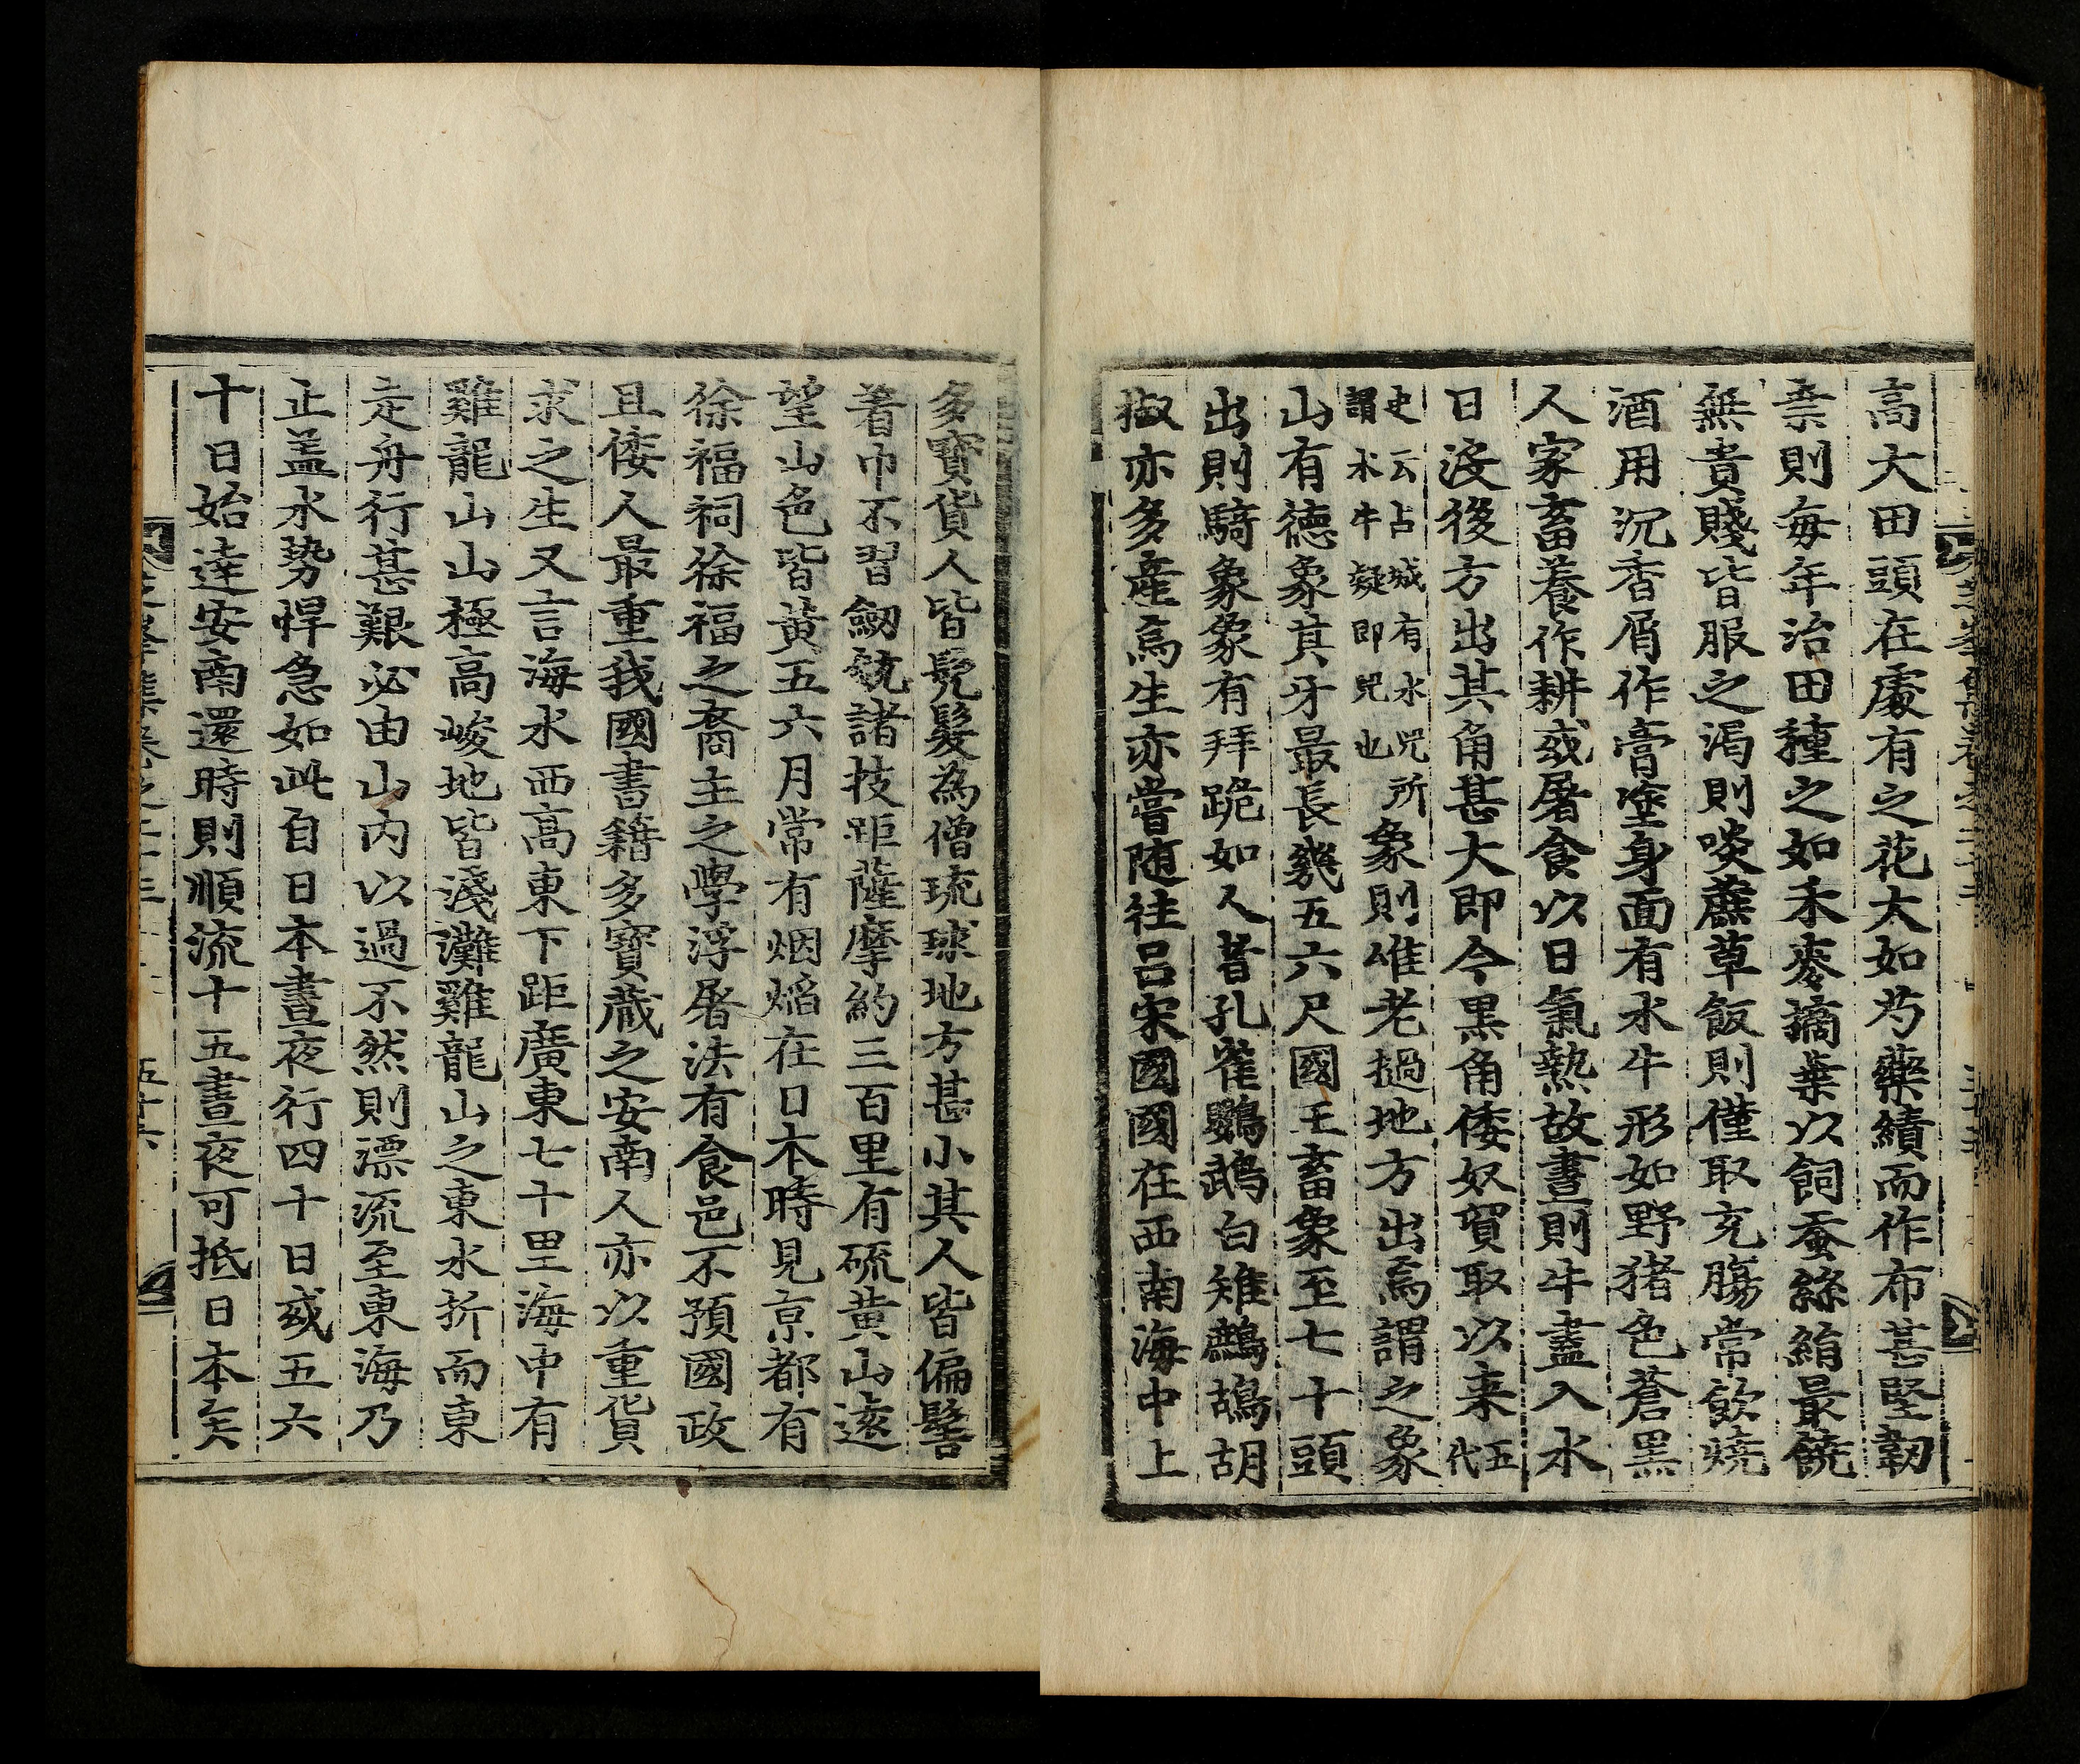 高大田頭在處有之花大如芍藥績而作布甚堅韌
柰則每年治田種之如禾麥摘葉以飼蚕絲絹最饒
無貴賤皆服之渴則啖蔗草飯則僅取充膓常飮燒
酒用沉香屑作膏塗身面有水牛形如野猪色蒼黑
人家畜養作耕或屠食以日氣熱故晝則牛盡入水
日沒後方出其角甚大即今黒角倭奴貿取以來五代
史云占城有水兕所謂水牛疑即兕也象則唯老撾地方出焉謂之象
山有德象其牙最長幾五六尺國王畜象至七十頭
出則騎象象有拜跪如人者孔雀鸚鵡白雉鷓鴣胡
椒亦多產焉生亦嘗随往呂宋國國在西南海中上
多寶貨人皆髡髮為僧琉球地方甚小其人皆偏髻
着巾不習劒銃諸技距薩摩約三百里有硫黄山遠
望山色皆黄五六月常有烟焰在日本時見京都有
徐福祠徐福之裔主之學浮屠法有食邑不預國政
且倭人最重我國書籍多寶蔵之安南人亦以重貨
求之生又言海水西高東下距廣東七十里海中有
雞龍山山極高峻地皆淺灘雞龍山之東水折而東
走舟行甚艱必由山内以過不然則漂流至東海乃
止盖水勢悍急如此自日本晝夜行四十日或五六
十日始達安南還時則順流十五晝夜可抵日本矣